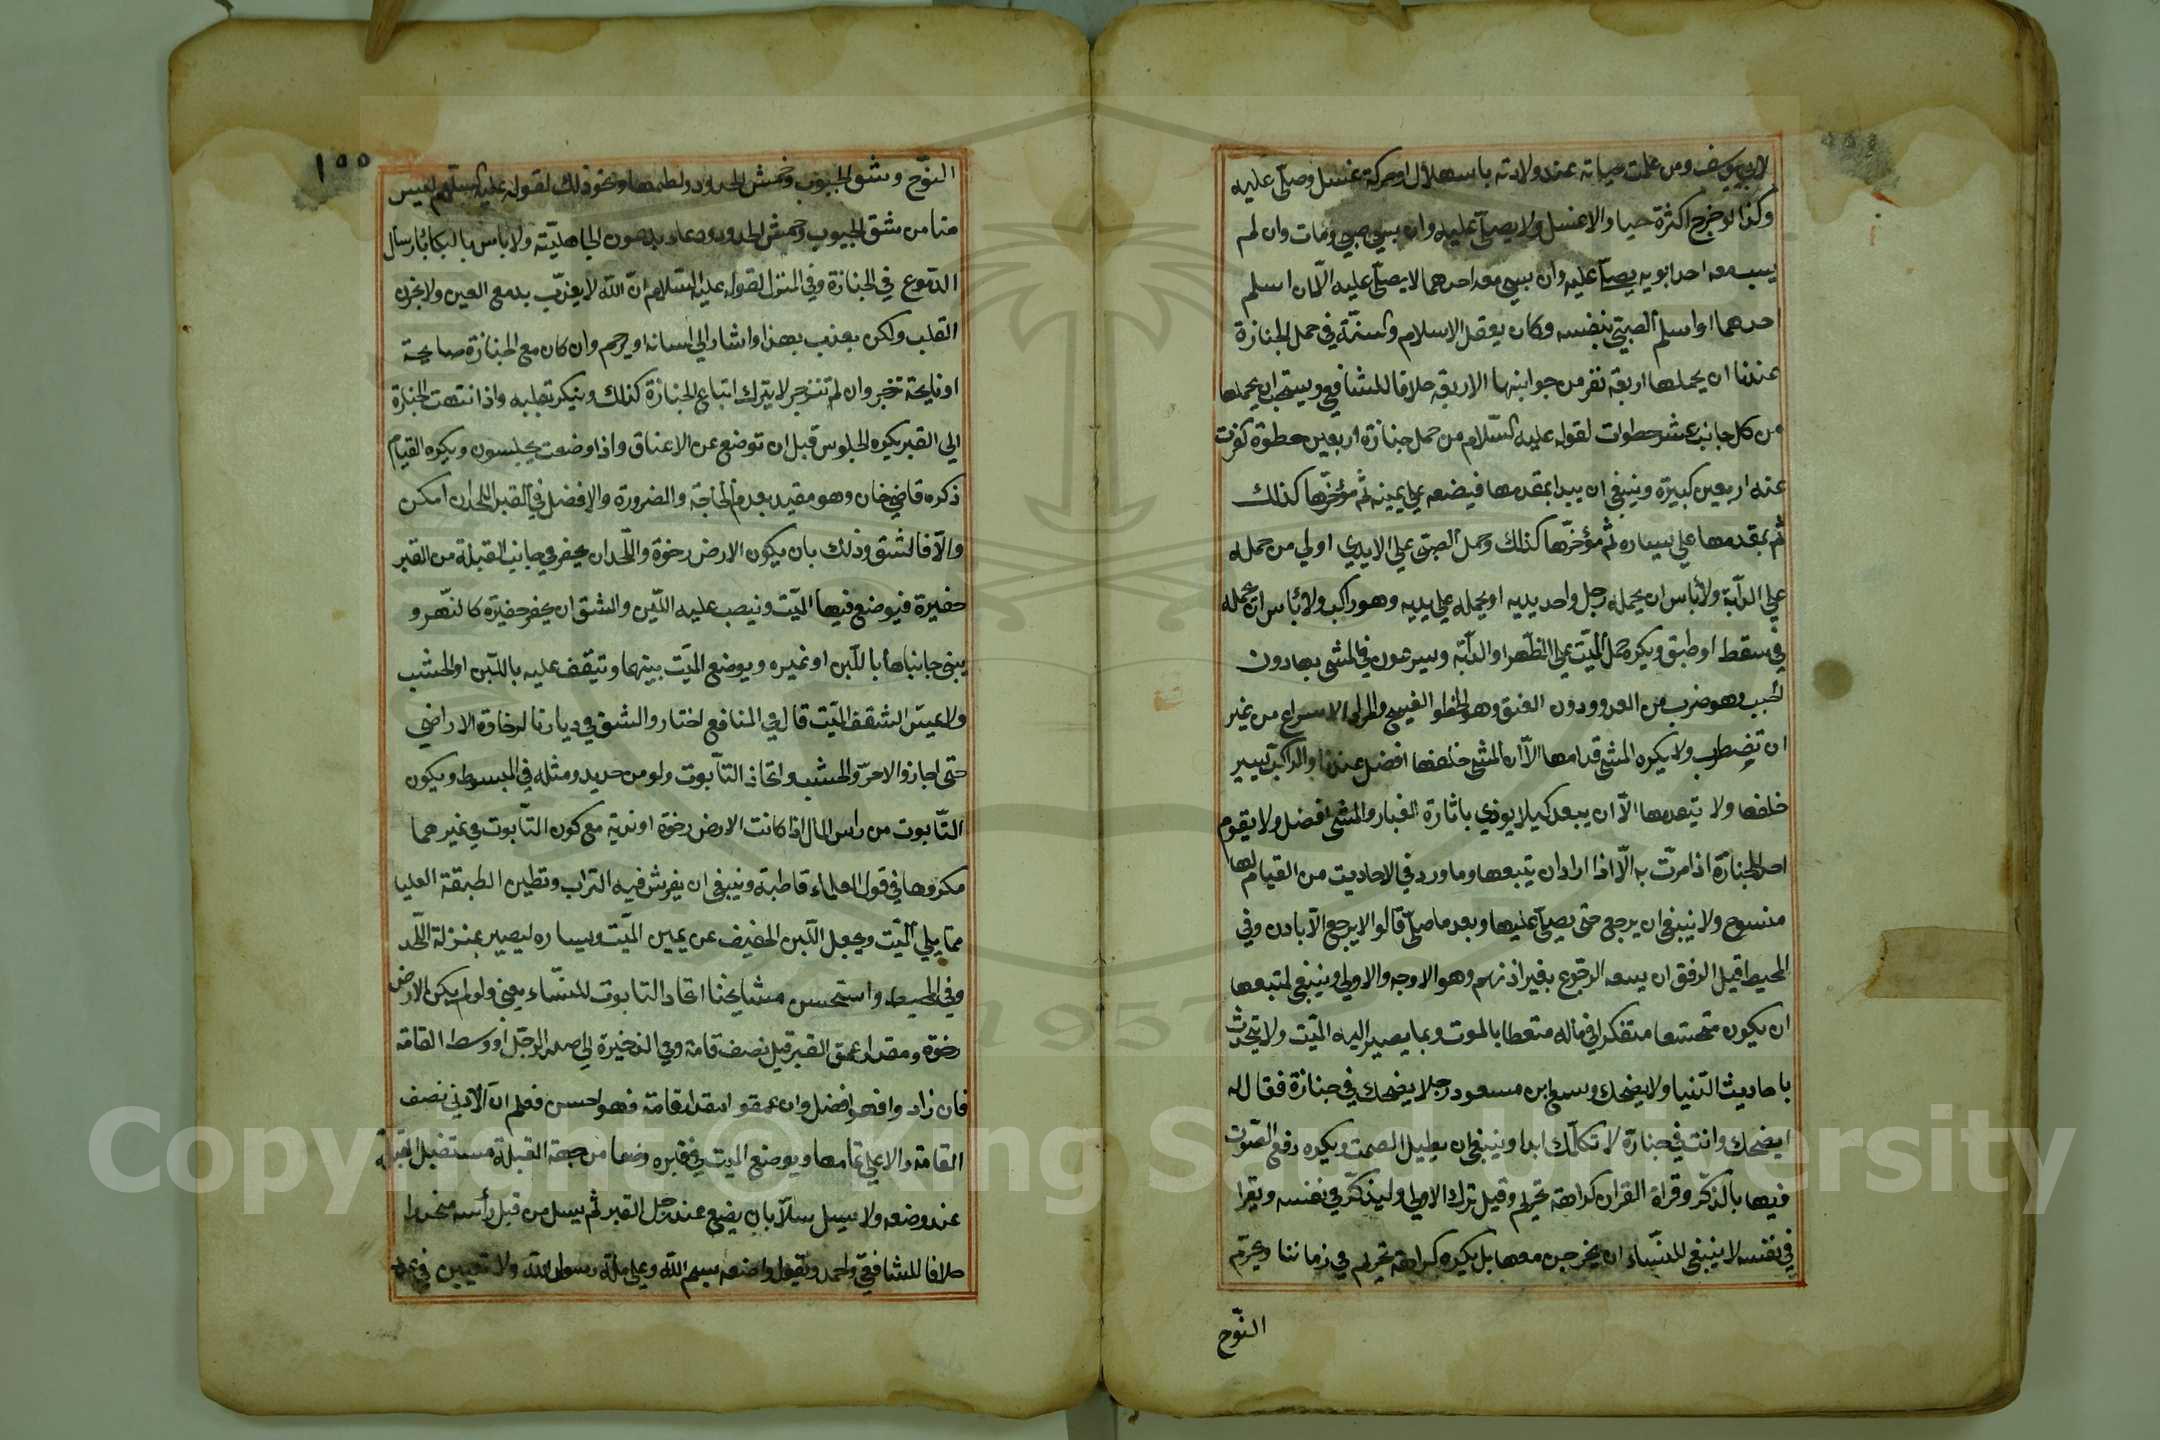 لابي يوسف ومن علمت حياته عند ولادته باستهلال او حركة غسل وصلّى عليه
وكذا لو خرج اكثره حيا والا غسل ولا يصلى عليه وان سبي صبي ومات وان لم
يسب معه احد ابويه يصلّى عليه وان سبي معه احدهما لا يصلّى عليه الّا ان اسلم
احدهما او اسلم الصبيّ بنفسه وكان يعقل الاسلام والسنّة في حمل الجنازة
عندنا ان يحملها اربعة نفر من جوانبها الاربعة خلافا للشافعي ويستحب ان يحملها
من كل جانب عشر خطوات لقوله عليه السّلام من حمل جنازة اربعين خطوة كفرت
عنه اربعين كبيرة وينبغي ان يبدا بمقدمها فيضعه على يمينه ثم مؤخّرها كذلك
ثم بمقدمها على يساره ثم مؤخّرها كذلك وحمل الصبي على الايدي اولي من حمله
على الدابّة ولا بأس ان يحمله رجل واحد بيديه او يحمله على يديه وهو راكب ولا بأس ان يحمله
في سقط او طبق ويكره حمل الميّت على الظهر او الدابّة ويسرعون في المشي بها دون
الخبب وهو ضرب من العدو ودون العنق وهو الخطو الفسيح والمراد الاسراع من غير
ان تضطرب ولا يكره المشي قدامها الّا ان المشي خلفها افضل عندنا والراكب يسير
خلفها ولا يتقدمها الّا ان يبعد كيلا يوذي باثارة الغبار والمشي افضل ولا يقوم
احد للجنازة اذا مرّت به الّا اذا اراد ان يتبعها وما ورد في الاحاديث من القيام لها
منسوخ ولا ينبغي ان يرجع حتى يصلّى عليها وبعد ما صلّى قالوا لا يرجع الّا باذن وفي
المحيط قيل الرفق ان يسعه الرجوع بغير اذنهم وهو الاوجه والاولي وينبغي لمتبعها
ان يكون متخشعا متفكرا في ماله متعظا بالموت وبما يصير اليه الميّت ولا يتحدّث
باحاديث الدّنيا ولا يضحك وسمع ابن مسعود رجلا يضحك في جنازة فقال له
ايضحك وانت في جنازة لا تكلّمك ابدا وينبغي ان يطيل الصمت ويكره رفع الصّوت
فيها بالذّكر وقراة القران كراهة تحريم وقيل ترك الاولى وليذكر في نفسه ويقرا
في نفسه لا ينبغي للنّساء ان يخرجن معها بل يكره كراهة تحريم في زماننا ويحرّم
النّوح
١٥٥
النّوح وشق الجيوب وخمش الخدود ولطمها ونحو ذلك لقوله عليه السّلام ليس
منا من شق الجيوب وخمش الخدود ودعا بدعون الجاهليّة ولا باس بالبكا بارسال
الدّموع في الجنازة وفي المنزل لقوله عليه السّلام انّ اللّه لا يعذّب بدمع العين ولا بحزن
القلب ولكن يعذب بهذا واشار الي لسانه او يرحم وان كان مع الجنازة صايحة
او نايحة تزجر وان لم تنزجر لا يترك اتباع الجنازة كذلك وينكر بقلبه واذا انتهت الجنازة
الي القبر يكره الجلوس قبل ان توضع عن الاعناق واذا وضعت يجلسون ويكره القيام
ذكره قاضي خان وهو مقيد بعدم الحاجة والضرورة والافضل في القبر اللحد ان امكن
والّا فالشق وذلك بان يكون الارض رخوة واللّحد ان يحفر في جانب القبلة من القبر
حفيرة فيوضع فيها الميّت وينصب عليه اللّبن والشق ان يحفر حفيرة كالنّهر و
يبنى جانباها باللّبن او غيره ويوضع الميّت بينهما ويتقف عليه باللّبن او الخشب
ولا يمسّ السّقف الميّت قال في المنافع اختاروا الشق في ديارنا لرخاوة الاراضي
حتى اجازوا الاجرّ والخشب واتخاذ التّابوت ولو من حديد ومثله في المبسوط ويكون
التّابوت من راس المال اذا كانت الارض رخوة او ندية مع كون التّابوت في غيرهما
مكروها في قول العلماء قاطبة وينبغي ان يفرش فيه التراب وتطين الطبقة العليا
ممّا يلي الميّت ويجعل اللّبن الخفيف عن يمين الميّت ويساره ليصير بمنزلة اللّحد
وفي المحيط واستحسن مشايخنا اتخاذ التابوت للنّساء يعني ولو لم يكن الارض
رخوة ومقدار عمق القبر قيل نصف قامة وفي الذخيرة الى صدر الرجل او وسط القامة
فان زادوا فهو افضل وان عمقوا مقدار قامة فهو احسن فعلم انّ الادنى نصف
القامة والاعلى تمامها ويوضع الميت في قبره وضعا من جهة القبلة مستقبل القبلة
عند وضعه ولا يسل سلّا بان يضع عند رجل القبر ثم يسل من قبل رأسه منحدرا
خلافا للشافعيّ واحمد ويقول واضعه بسم اللّه وعلى ملّة رسول اللّه ولا تعيين في عدد